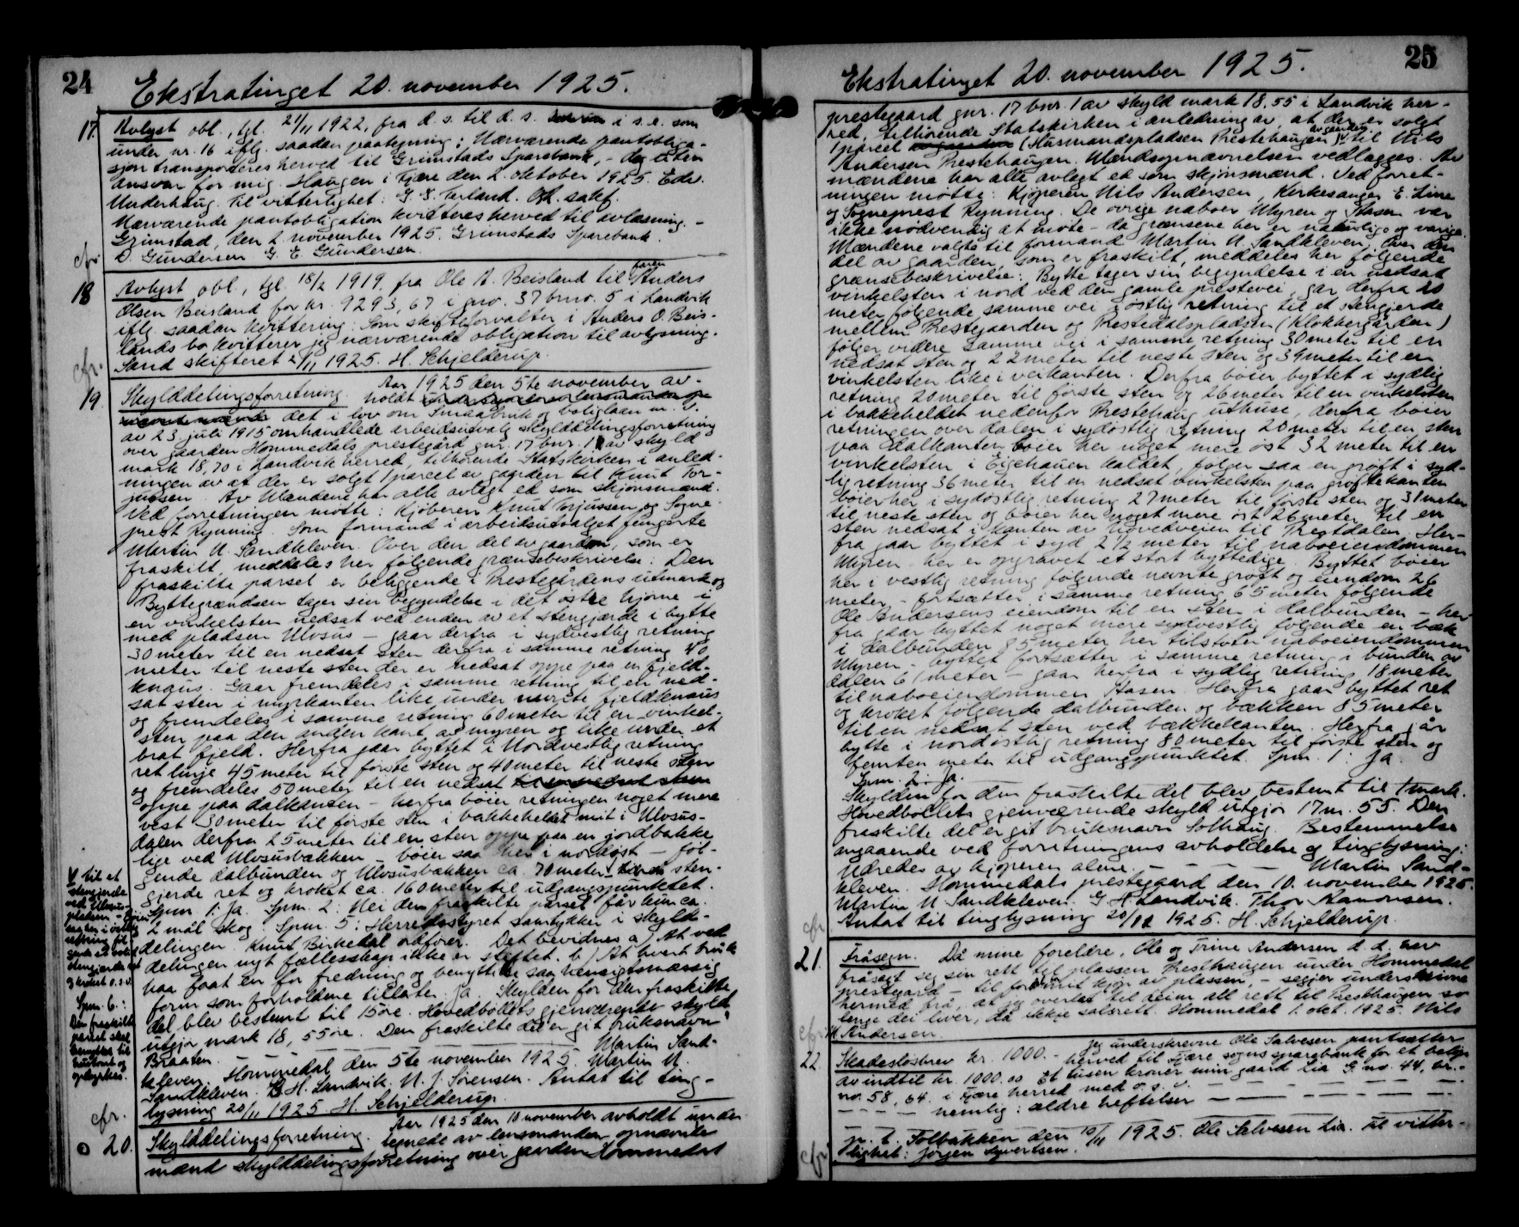 24
Ekstratinget 20. november 1925.
17. Avlyst obl., tgl. 21/11 1922, fra d. s. til d. s. i s. e. som
under nr. 16 iflg. saadan paategning: Nærværende pantobliga-
sjon transporteres herved til Grimstads Sparebank, – dog uten
ansvar for mig. Haugen i Fjære den 2 oktober 1925. Edv.
Underhaug. Til vitterlighet: O. sakf.
Nærværende pantobligation kvitteres herved til avlæsning. –
Grimstad, den 2 november 1925. Grimstads Sparebank.
O. Gundersen G. E. Gundersen.
cfr.
18 Avlyst obl., tgl. 18/2 1919, fra Ole A. Beisland til faren Anders
Olsen Beisland for kr. 9293,67 i gno. 37 brno. 5 i Landvik
iflg. saadan kvittering: Som skifteforvalter i Anders O. Beis-
lands bo kvitterer jeg nærværende obligation til avlysning.
Sand skifteret 2/11 1925. H. Schjelderup.
cfr.
19 Skylddelingsforretning. Aar 1925 den 5te november av-
holdt
det i lov om Smaabruk og boliglaan nr. 1.
av 23 juli 1915 omhandlede arbeidsutvalg skylddelingsforretning
over gaarden Hommedals prestegård gnr. 17 bnr. 1 av skyld
mark 18,70 i Landvik herred, tilhørende Statskirken i anled-
ningen av at der er solgt 1 parcel av gaarden til Knut Tor-
jussen. Av Mændene har alle avlagt ed som skjønsmænd.
Ved forretningen møtte: Kjøberen Knut Torjussen og Sogne
prest Rynning. Som formand i arbeidsutvalget fungerte
Martin N. Sandkleven. Over den del av gaarden, som er
fraskilt, meddeles her følgende grænsebeskrivelse: Den
fraskilte parsel er beliggende i Prestegårdens utmark og
Byttegrændsen tager sin begyndelse i det østre hjørne – i
en vinkelsten nedsat ved enden av et stengjærde i bytte
med pladsen Ulosus – gaar derfra i sydvestlig retning
30 meter til en nedsat sten derfra i samme retning 40
meter til neste sten der er nedsat oppe paa en fjeld-
knaus. Gaar fremdeles i samme retning til en ned-
sat sten i myrkanten like under nævnte fjeldknaus
og fremdeles i samme retning 60 meter til en vinkel-
sten paa den anden kant av myren og like under et
brat fjeld. Herfra gaar byttet i Nordvestlig retning
ret linje 45 meter til første sten og 40 meter til neste sten
og fremdeles 50 meter til en nedsat til en nedsat sten
oppe paa dalkanten – herfra bøier retningen noget mere
vest 30 meter til første sten i bakkeheldet mit i Ulosus-
dalen derfra 25 meter til en sten oppe paa en jordbakke
like ved Ulosusbækken – bøier saa her i nordøst – føl-
gende dalbunden og Ulosusbækken ca. 70 meter sten-
gjerde ret og kroket ca. 160 meter til udgangspunktet.
Spm. 1: Ja. Spm. 2: Nei den fraskilte parsel får kun ca.
2 mål skog. Spm. 5: Herredsstyret samtykker i skyld-
delingen. Knut Birkedal ordfører. Det bevidnes a/ At ved
delingen nyt fællesskap ikke er stiftet. b/ At hvert bruk
har faat en for fredning og benyttelse saa hensigtsmæssig
form som forholdene tillater. Ja. Skylden for den fraskilte
del blev bestemt til 15 øre. Hovedbølets gjenværende skyld
utgjør mark 18,55 øre. Den fraskilte del er git bruksnavn
Braaten. Martin Sand-
kleven. Hommedal den 5te november 1925. Martin N.
Sandkleven. G. H. Landvik. N. J. Sørensen. Antat til ting-
lysning 20/11 1925 H. Schjelderup.
V til et
stengjerde
ved Ulosus-
pladsen – bøier
saa her i østlig
retning til
stengjerde ret
og kroket o.s.v.
Spm. 6.:
Den fraskilte
parsel skal
benyttes til
cfr.
20. Skylddelingsforretning. Aar 1925 den 10 november avholdt under-
tegnede av lensmanden opnævnte
mænd skylddelingsforretning over gaarden Hommedal
25
Ekstratinget 20. november 1925.
prestegaard gnr. 17 bnr. 1 av skyld mark 18,55 i Landvik her-
red, tilhørende Statskirken i anledning av, at der er solgt
1 parcel (Husmandspladsen Prestehaugen) av gaarden til Nils
Andersen Prestehaugen. Mandsopnævnelsen vedlægges. Av
mændene har alle avlagt ed som skjønsmænd. Ved forret-
ningen møtte: Kjøperen Nils Andersen, Kirkesanger E. Line
og Sogneprest Rynning. De øvrige naboer Myren og Aasen var
ikke nødvendig at møte – da grænserne her er naturlige og varige.
Mændene valgte til formand Martin N. Sandkleven. Over den
del av gaarden, som er fraskilt, meddeles her følgende
grænsebeskrivelse: Bytte tager sin begyndelse i en nedsat
vinkelsten i nord ved den gamle prestevei, går derfra 20
meter følgende samme vei i østlig retning til et stengjerde
mellem Prestegaarden og Prestedalspladsen (Klokkergården)
følger videre samme vei i samme retning 30 meter til en
nedsat sten og 22 meter til neste sten og 39 meter til en
vinkelsten like i veikanten. Derfra bøier byttet i sydlig
retning 20 meter til første sten og 26 meter til en vinkelsten
i bakkeheldet nedenfor Prestehaug uthuse, derfra bøier
retningen over dalen i sydøstlig retning 20 meter til en sten
paa dalkanten bøier her noget mere øst 32 meter til en
vinkelsten i Eigehauen kaldet, følger saa en grøft i syd-
lig retning 36 meter til en nedsat vinkelsten paa grøftekanten
bøier her i sydøstlig retning 27 meter til første sten og 31 meter
til neste sten og bøier her noget mere øst 26 meter til en
sten nedsat i kanten av hovedveien til Prestdalen. Her-
fra gaar byttet i syd 2 1/2 meter til naboeiendommen
Myren – her er opgravet et stort byttedige. Byttet bøier
her i vestlig retning følgende nævnte grøft og eiendom 26
meter – fortsætter i samme retning 65 meter følgende
Ole Andersens eiendom til en sten i Dalbunden – her-
fra gaar byttet noget mere sydvestlig følgende en bæk
i dalbunden 85 meter her tilstøter naboeiendommen
Myren – byttet fortsætter i samme retning i bunden av
dalen 61 meter – gaar herfra i sydlig retning 18 meter
til naboeiendommen Aasen. Herfra gaar byttet ret
og kroket følgende dalbunden og bækken 85 meter
til en nedsat sten ved bækkekanten. Herfra går
bytte i nordøstlig retning 80 meter til første sten og
femten meter til udgangspunktet. Spm. 1: Ja.
Spm. 2: Ja.
Skylden for den fraskilte del blev bestemt til 1 mark.
Hovedbølets gjenværende skyld utgjør 17 m. 55. Den
fraskilte del er git bruksnavn Solhaug. Bestemmelse
angaaende ved forretningens avholdelse og tinglysning:
Udredes av kjøperen alene. – – – Martin Sand-
kleven. Hommedals prestegaard den 10. november 1925.
Martin N Sandkleven. G H Landvik. Thor Aamonsen.
Antat til tinglysning 20/11 1925. H. Schjelderup.
cfr
21. Fråsegn. Då mine foreldre, Ole og Trine Andersen d. d. hev
fråsagt seg sin rett til plassen Presthaugen under Hommedal
prestegard – til fordel kjøp av plassen, – segjer underskrivne
hermed frå, at eg overlet til deim all rett til Presthaugen so
lenge dei liver, då ikkje salsrett. Hommedal 1. okt. 1925. Nils
Andersen.
cfr
22 Skadesløsbrev kr. 1000.– Jeg underskrevne Ole Salvesen pantsætter
herved til Fjære sogns sparebank for et beløp
av indtil kr. 1000.00 Et tusen kroner min gaard Lia G. no. 44, br.-
no. 58, 64. i Fjære herred med o. s. v.
– – – – nemlig: ældre heftelser – – – – –
p. t. Tolbakken den 10/11 1925. Ole Salvesen Lia. Til vitter-
lighet: Jørgen Syvertsen.
cfr